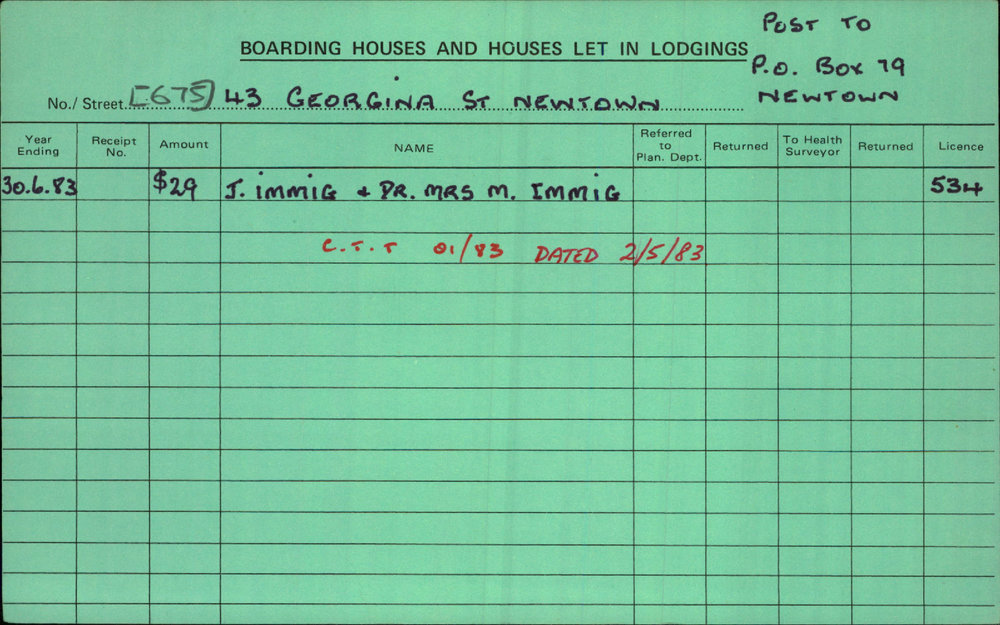 POST TO
BOARDING HOUSES AND HOUSES LET IN LODGINGS
P.O. BOX 79
NEWTOWN
No./ Street [E675] 43 GEORGINA ST NEWTOWN
Year Ending Receipt No. Amount NAME Referred to Plan. Dept. Returned To Health Surveyor Returned Licence
30.6.83 $29 J. IMMIG + DR. MRS M. IMMIG 534
C.T.T 01/83 DATED 2/5/83